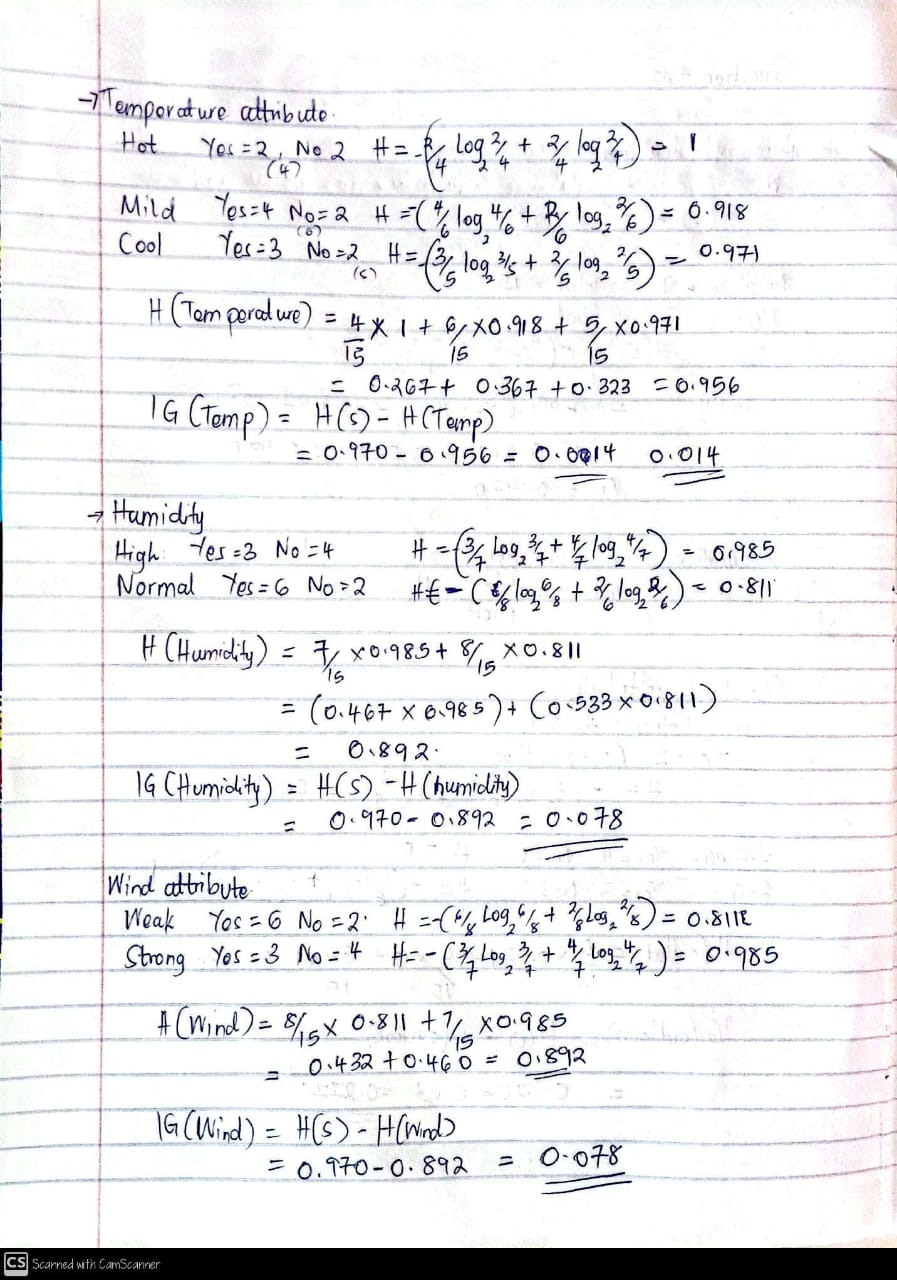 → Temperature attribute.
Hot Yes = 2, No 2 H = -(2/4 log2 2/4 + 2/4 log2 2/4) = 1
(4)
Mild Yes=4 No=2 H =-(4/6 log2 4/6 + 2/6 log2 2/6) = 0.918
(6)
Cool Yes=3 No=2 H=-(3/5 log2 3/5 + 2/5 log2 2/5) = 0.971
(5)
H (Temperature) = 4/15 X 1 + 6/15 X0.918 + 5/15 X0.971
= 0.267+ 0.367 +0.323 =0.956
IG (Temp) = H(S) - H(Temp)
= 0.970 - 0.956 = 0.0014 0.014
→ Humidity
High Yes=3 No=4 H =-(3/7 Log2 3/7 + 4/7 log2 4/7) = 0.985
Normal Yes=6 No=2 H = -(6/8 log2 6/8 + 2/6 log2 2/6) = 0.811
H (Humidity) = 7/15 x0.985+ 8/15 x0.811
= (0.467 x 0.985)+ (0.533x0.811)
= 0.892.
IG (Humidity) = H(S) - H (humidity)
= 0.970- 0.892 = 0.078
Wind attribute
Weak Yes = 6 No =2. H =-(6/8 Log2 6/8 + 2/8 Log2 2/8) = 0.811
Strong Yes =3 No = 4 H=-(3/7 Log2 3/7 + 4/7 Log2 4/7) = 0.985
H (Wind) = 8/15 x 0.811 +7/15 x0.985
= 0.432 +0.460 = 0.892
IG (Wind) = H(S) - H(Wind)
= 0.970-0.892 = 0.078
CS Scanned with CamScanner